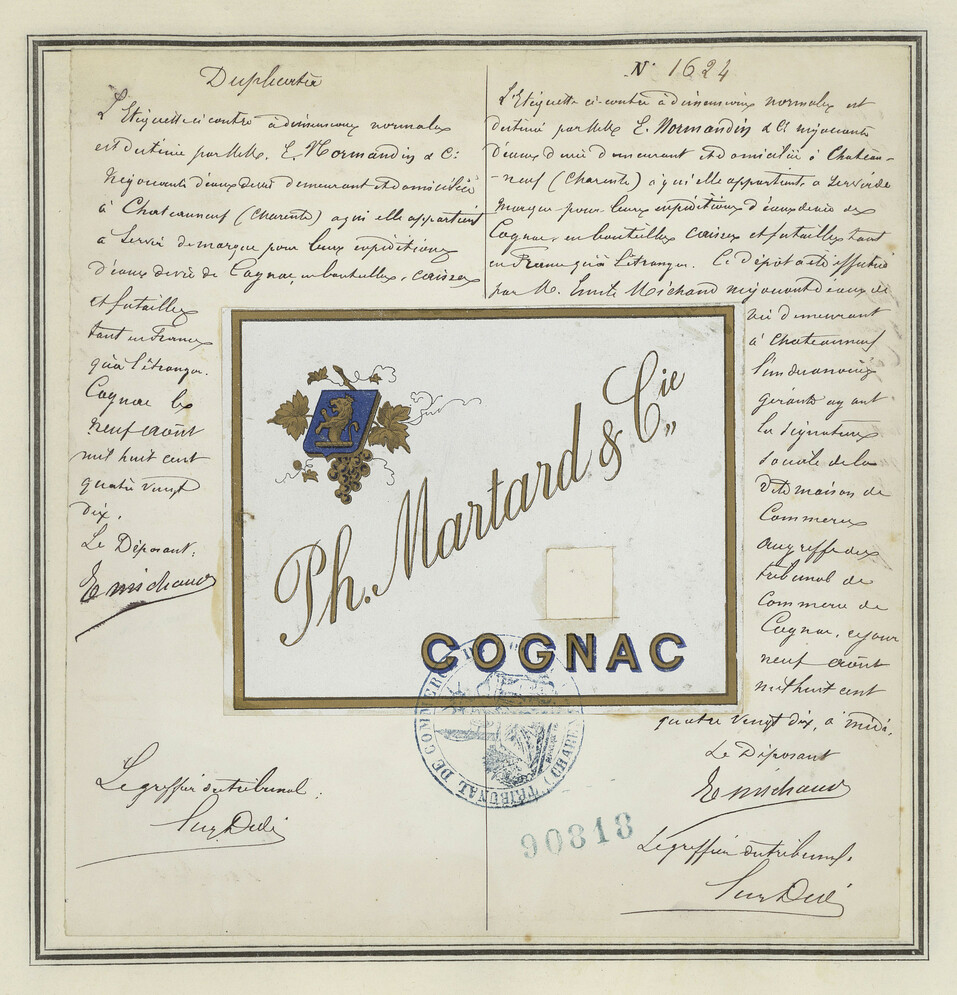 Duplicata
L'Etiquette ci contre à dimensions normales
est destinée par MM. E. Normandin & Cie
Négociants d'eaux de vie demeurant et domiciliés
à Chateauneuf (Charente) à qui elle appartient
à servir de marque pour leurs expéditions
d'eaux de vie de Cognac, en bouteilles, caisses
et futailles
tant en France
qu'à l'étranger.
Cognac le
neuf août
mil huit cent
quatre vingt
dix.
Le Déposant:
E Michaud
Le greffier du tribunal:
N° 1624
L'Etiquette ci-contre à dimensions normales est
destinée par MM. E. Normandin & Cie négociants
d'eaux de vie demeurant et domiciliés à Chateau-
-neuf (Charente) à qui elle appartient à servir de
marque pour leurs expéditions d'eaux de vie de
Cognac, en bouteilles caisses et futailles tant
en France qu'à l'étranger. Ce dépôt a été effectué
par M. Emile Michaud négociant d'eaux de
vie demeurant
à Chateauneuf
l'un des
gérants ayant
la signature
sociale de la
dite maison de
Commerce
au greffe du
tribunal de
Commerce de
Cognac, ce jour
neuf août
mil huit cent
quatre vingt dix, à midi.
Le Déposant
E Michaud
Le greffier du tribunal.
Ph. Martard & Cie
COGNAC
TRIBUNAL DE COMMERCE
90818